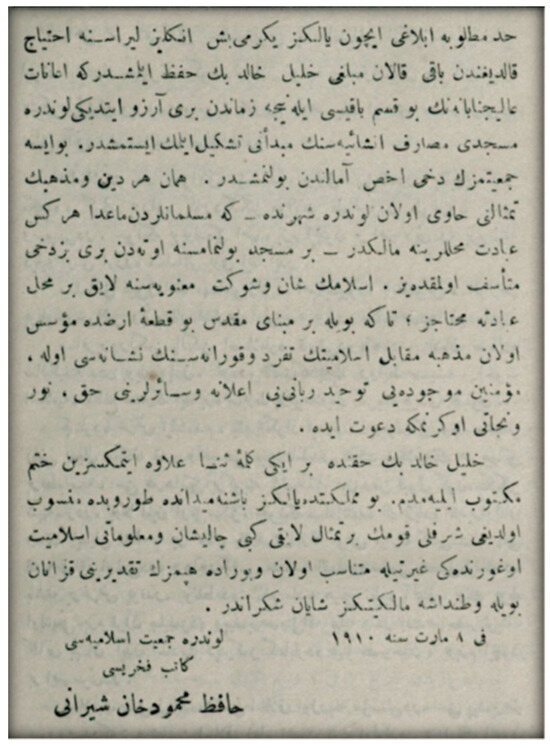 حد مطلوبه ابلاغی ایچون یالکز یکرمی بش انکلیز لیراسنه احتیاج
قالدیغندن باقی قالان مبلغی خلیل خالد بك حفظ ایلشدر که اعانات
عالیجنابانه‌نك بو قسم باقیسی ایله نیجه زماندن بری آرزو ایتدیکی لوندره
مسجدی مصارف انشائیه‌سنك مبدأنی تشکیل ایلك ایستمشدر. بوایسه
جمعیتمزك دخی اخص آمالندن بولنمشدر . همان هر دین ومذهبك
تمثالنی حاوی اولان لوندره شهرنده ــ که مسلمانلردن ماعدا هرکس
عبادت محللرینه مالکدر ــ بر مسجد بولنمامسنه اوته‌دن بری بزدخی
متأسف اولمقده‌یز . اسلامك شان وشوکت معنویه‌سنه لایق بر محل
عبادته محتاجز ؛ تاکه بویله بر مبنای مقدس بو قطعهٔ ارضده مؤسس
اولان مذهبه مقابل اسلامیتك تفرد وقورانه‌سنك نشانه‌سی اوله ،
مؤمنین موجوده‌یی توحید ربانی‌یی اعلانه وسائرلرینی حق ، نور
ونجاتی اوکرنمکه دعوت ایده .
خلیل خالد بك حقنده بر ایکی کلهٔ ثنا علاوه ایتمکسزین ختم
مکتوب المیه‌مدم. بو مملکتده یالکز باشنه میدانده طوروبده منسوب
اولدیغی شرفلی قومك بر تمثال لایقی کبی چالیشان ومعلوماتی اسلامیت
اوغورنده‌کی غیرتیله متناسب اولان وبوراده هپمزك تقدیرینی قزانان
بویله وطنداشه مالکتکز شایان شکراندر .
فی ٨ مارت سنه ١٩١٠ لوندره جمعیت اسلامیه‌سی
کاتب فخریسی
حافظ محمودخان شیرانی